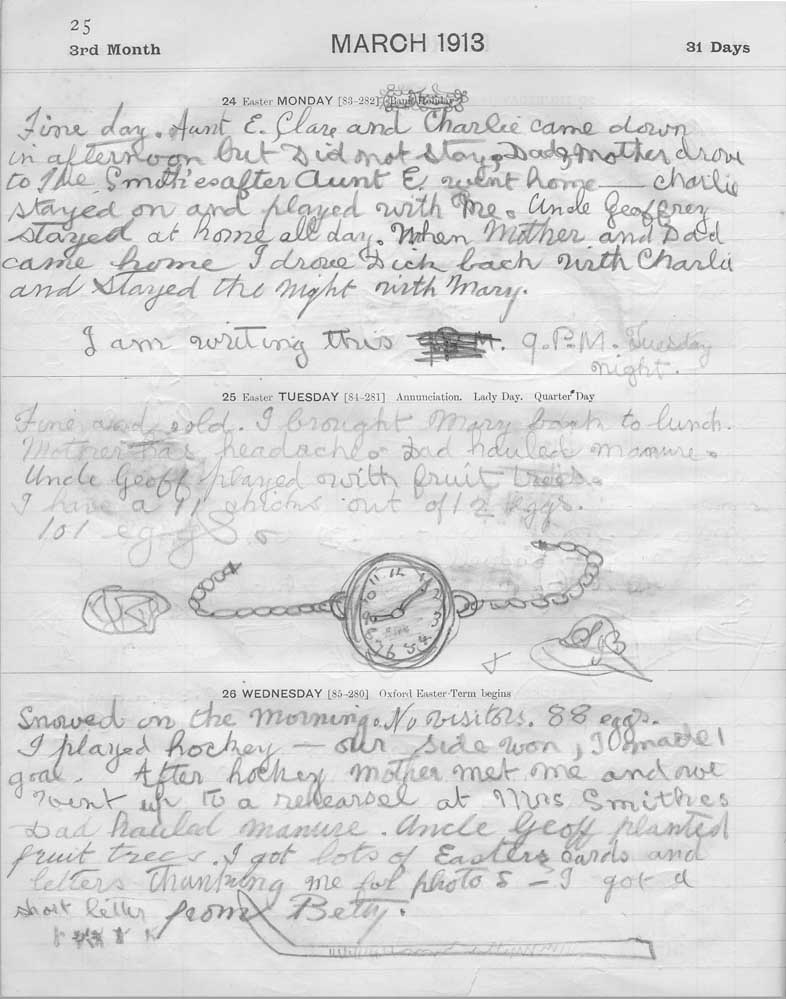 25
3rd Month
MARCH 1913
31 Days
24 Easter MONDAY [83-282] (Bank Holiday)
Fine day. Aunt E. Clare and Charlie came down
in afternoon but Did not stay. Dad & Mother drove
to The Smith'es after Aunt E. went home — Charlie
stayed on and played with Me. Uncle Geoffrey
stayed at home all day. When Mother and Dad
came home I drove Dick back with Charlie
and stayed the night with Mary.
I am writing this M. 9.P.M. Tuesday
night.
25 Easter TUESDAY [84-281] Annunciation. Lady Day. Quarter Day
Fine and cold. I brought Mary back to lunch.
Mother has headache. Dad hauled manure.
Uncle Geoff played with fruit trees.
I have a 11 chicks out of 12 eggs.
101 eggs.
11 12 1
10 2
9 3
8 4
7 6 5
26 WEDNESDAY [85-280] Oxford Easter Term begins
Snowed on the Morning. No visitors. 88 eggs.
I played hockey — our side won, I made 1
goal. After hockey Mother met me and we
went up to a rehearsel at Mrs Smithes
Dad hauled manure. Uncle Geoff planted
fruit trees. I got lots of Easter cards and
letters thanking me for photos — I got a
short letter from Betty.